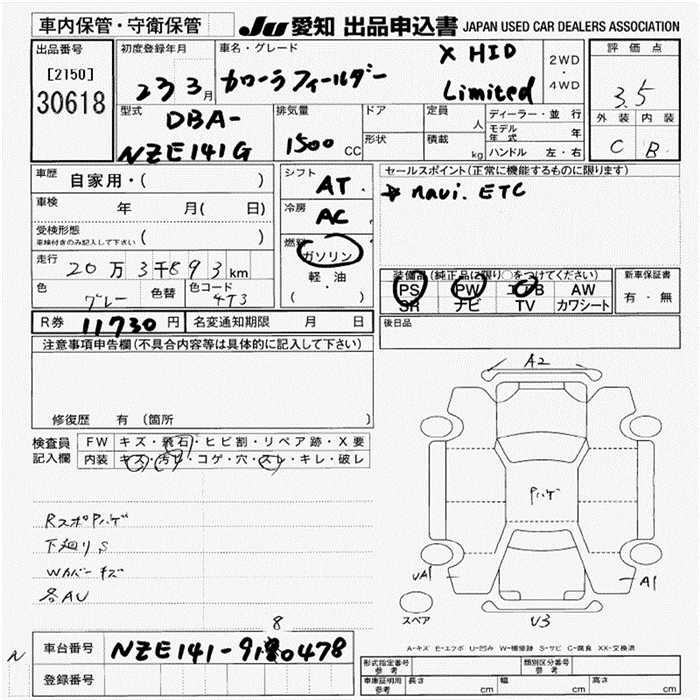 車内保管・守衛保管
JU 愛知 出品申込書 JAPAN USED CAR DEALERS ASSOCIATION
出品番号
[2150]
30618
初度登録年月
23 3月
車名・グレード
カローラフィールダー
X HID
Limited
2WD
・
4WD
評価点
3.5
外装 内装
C B
型式
DBA-
NZE141G
排気量
1500 CC
ドア
形状
定員 人
積載 kg
ディーラー・並行
モデル年式 年
ハンドル 左・右
車歴 自家用・( )
車検 年 月( 日)
受検形態 ( )
車検付きのみ記入して下さい
走行 20万3千893km
色 グレー 色替 色コード 4T3
シフト AT
冷房 AC
燃料 ガソリン
軽・油
( ・ )
セールスポイント(正常に機能するものに限ります)
☆ navi. ETC
装備品(純正品に限り○をつけてください)
PS PW エアB AW
SR ナビ TV カワシート
新車保証書
有・無
R券 11730円 名変通知期限 月 日
後日品
注意事項申告欄(不具合内容等は具体的に記入して下さい)
修復歴 有 (箇所 )
検査員記入欄
FW キズ・飛石・ヒビ割・リペア跡・X要
内装 キズ・汚レ・コゲ・穴・スレ・キレ・破レ
RスポPハゲ
下廻りS
Wカバーキズ
各AU
A2
Pハゲ
UA1
A1
U3
スペア
A-キズ E-エフポ U-凹み W-補修跡 S-サビ C-腐食 XX-交換済
8
車台番号 NZE141-9180478
登録番号
N
形式指定番号 参考
類別区分番号 参考
車庫証明用 参考 長さ cm 幅 cm 高さ cm